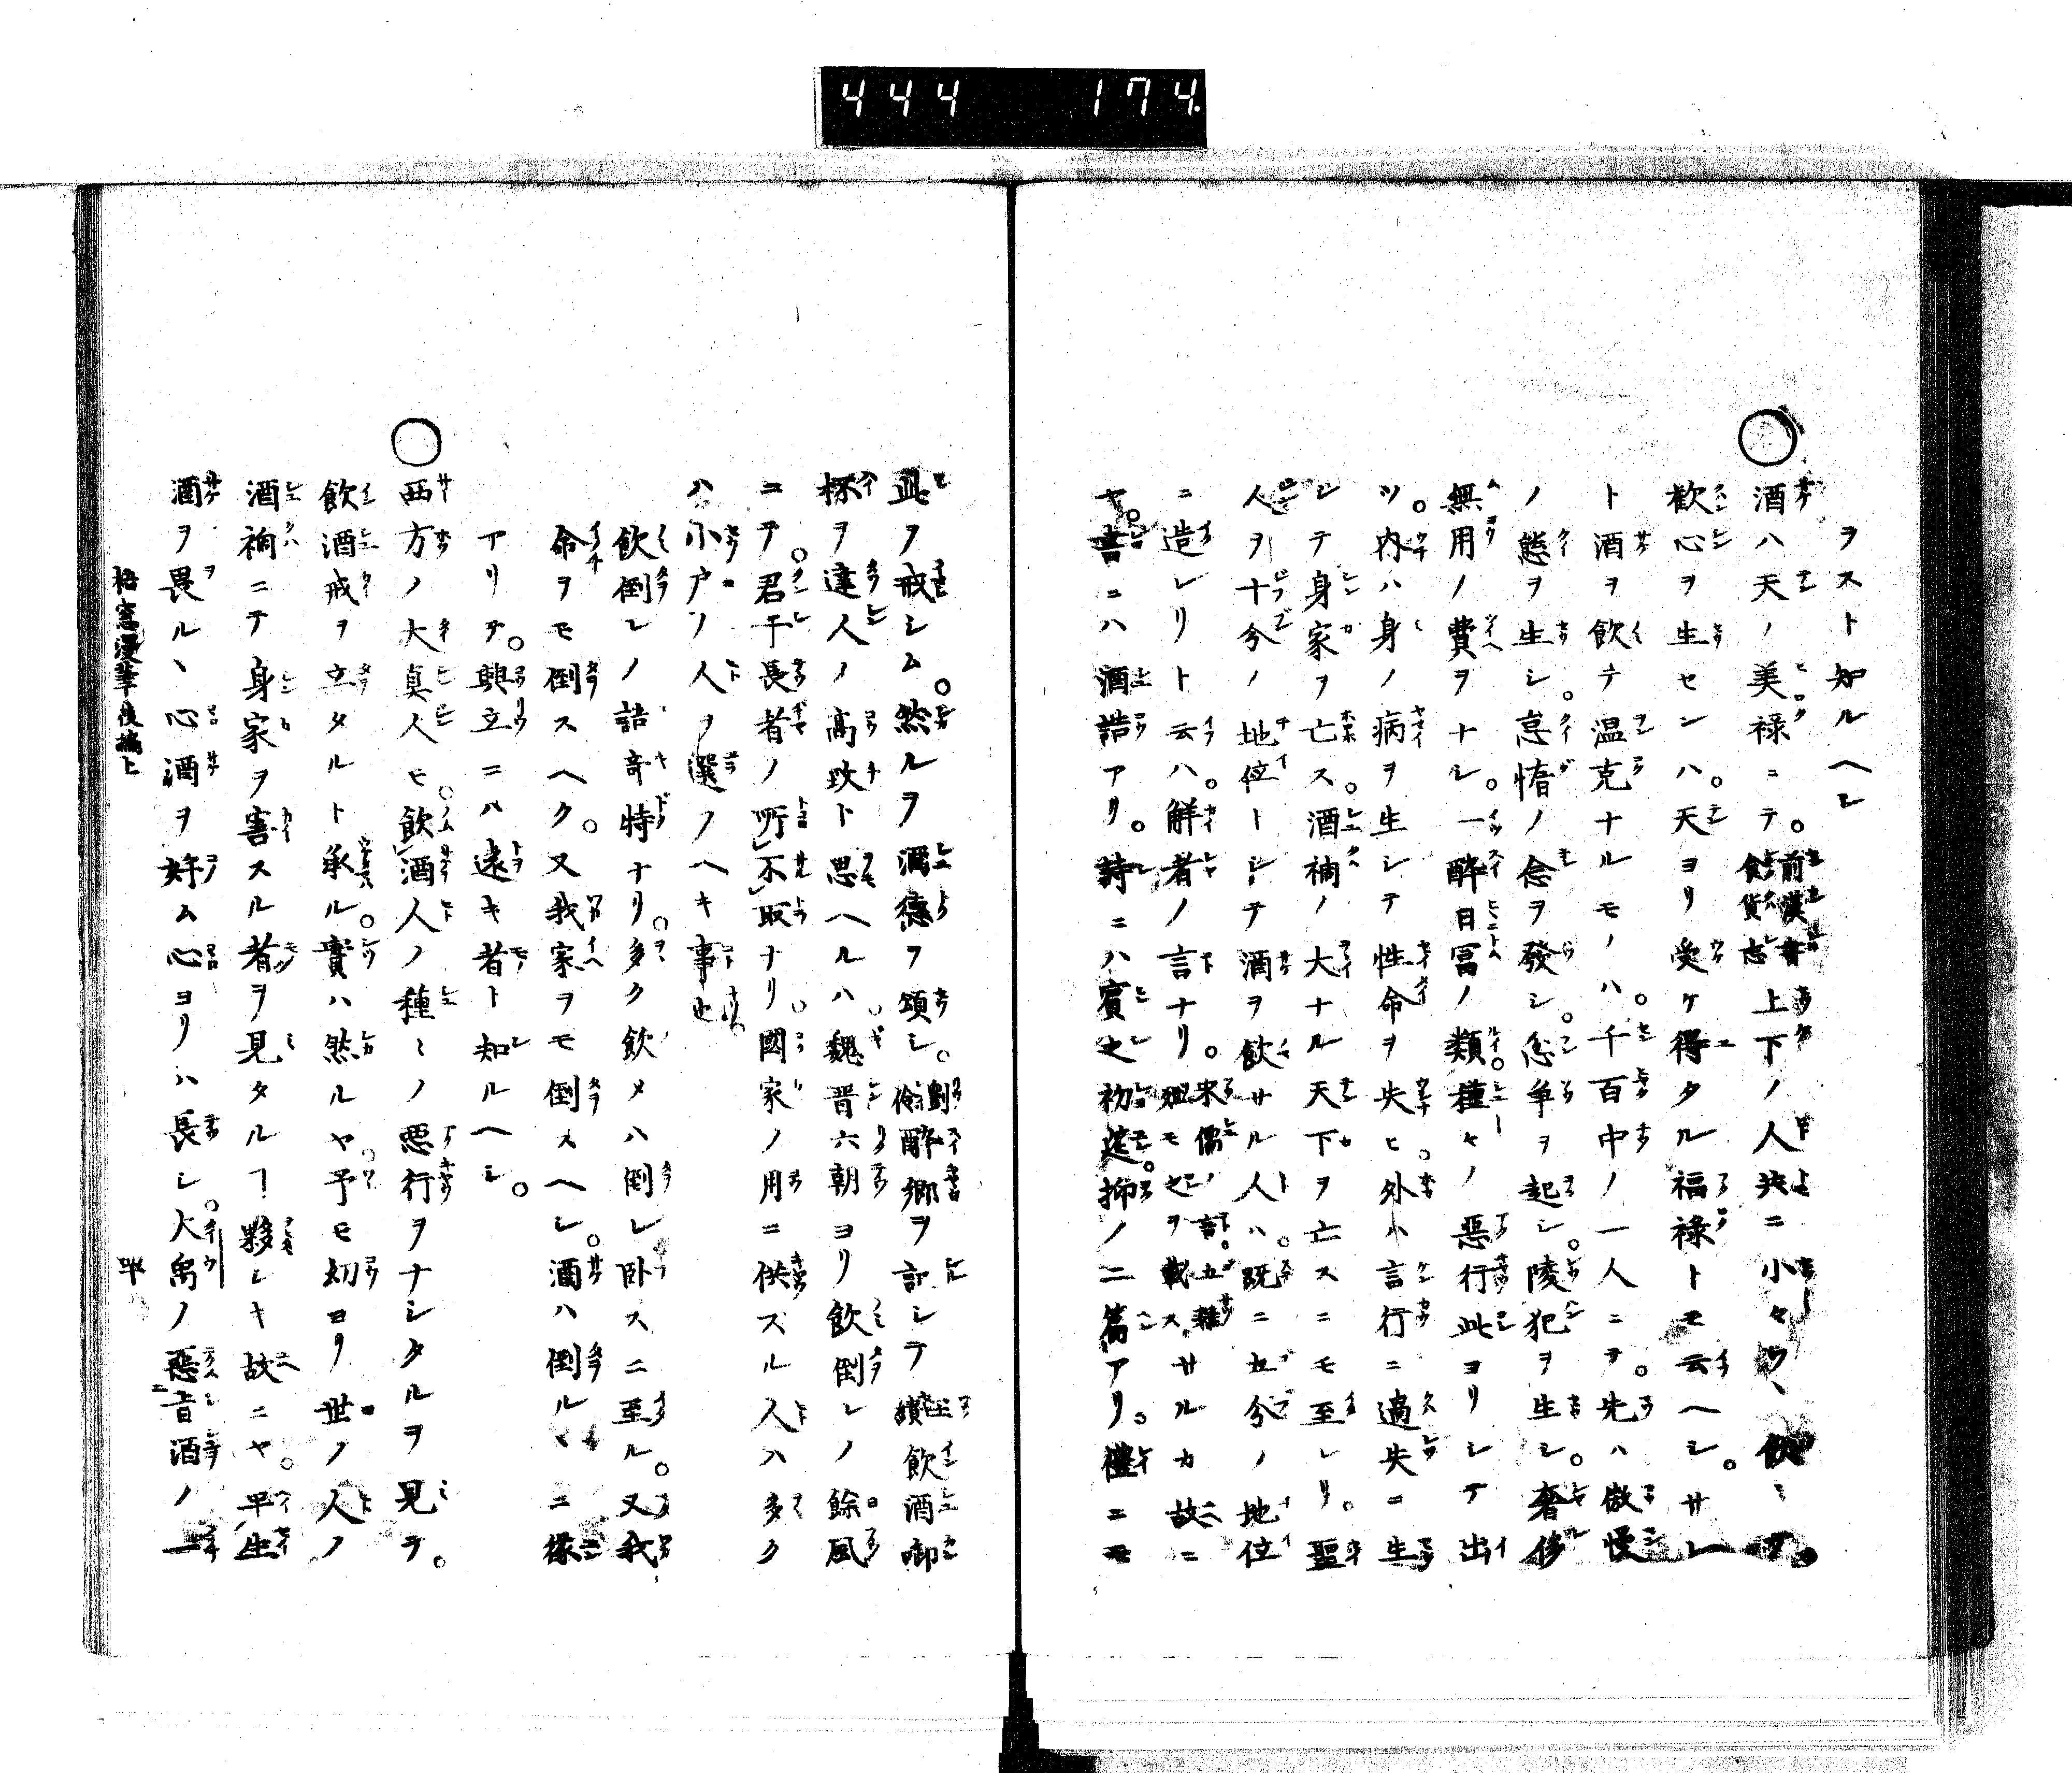 444 174
ヲスト知ルヘシ
○酒ハ天ノ美禄ニテ。前漢書食貨志上下ノ人共ニ小々ツヽ飲ミテ。
歓心ヲ生センハ。天ヨリ受ケ得タル福禄トモ云ヘシ。サレ
ト酒ヲ飲テ温克ナルモノハ。千百中ノ一人ニテ。先ハ傲慢
ノ態ヲ生シ。怠惰ノ念ヲ發シ。忿争ヲ起シ。陵犯ヲ生シ。奢侈
無用ノ費ヲナシ。一酔日冨ノ類。種々ノ惡行此ヨリシテ出
ツ。内ハ身ノ病ヲ生シテ性命ヲ失ヒ。外ハ言行ニ過失ヲ生
シテ身家ヲ亡ス。酒禍ノ大ナル天下ヲ亡スニモ至レリ。聖
人ヲ十分ノ地位トシテ酒ヲ飲サル人ハ。既ニ五分ノ地位
ニ造レリト云ハ。解者ノ言ナリ。宋儒ノ言。五雜俎モ之ヲ載ス。サルカ故ニ
ヤ。書ニハ酒誥アリ。詩ニハ賓之初筵。抑ノ二篇アリ。禮ニモ
此ヲ戒シム。然ルヲ酒德ヲ頌シ。劉伶醉郷ヲ記シテ王績飲酒御
杯ヲ達人ノ高致ト思ヘルハ。魏晋六朝ヨリ飲倒レノ餘風
ニテ。君子長者ノ所不取ナリ。國家ノ用ニ供スル人ハ多ク
ハ小户ノ人ヲ選ブヘキ事也。
飲倒レノ語奇特ナリ。多ク飲メハ倒レ卧スニ至ル。又我
命ヲモ倒スヘク。又我家ヲモ倒スヘシ。酒ハ倒ルヽニ縁
アリテ。興立ニハ遠キ者ト知ルヘシ。
○西方ノ大真人モ。飲酒人ノ種々ノ悪行ヲナシタルヲ見テ。
飲酒戒ヲ立タルト承ル。實ハ然ルヤ。予モ幼ヨリ世ノ人ノ
酒禍ニテ身家ヲ害スル者ヲ見タルヿ夥シキ故ニヤ。平生
酒ヲ畏ルヽ心酒ヲ好ム心ヨリハ長シ。大禹ノ惡旨酒ノ一
梧窓漫筆後編上